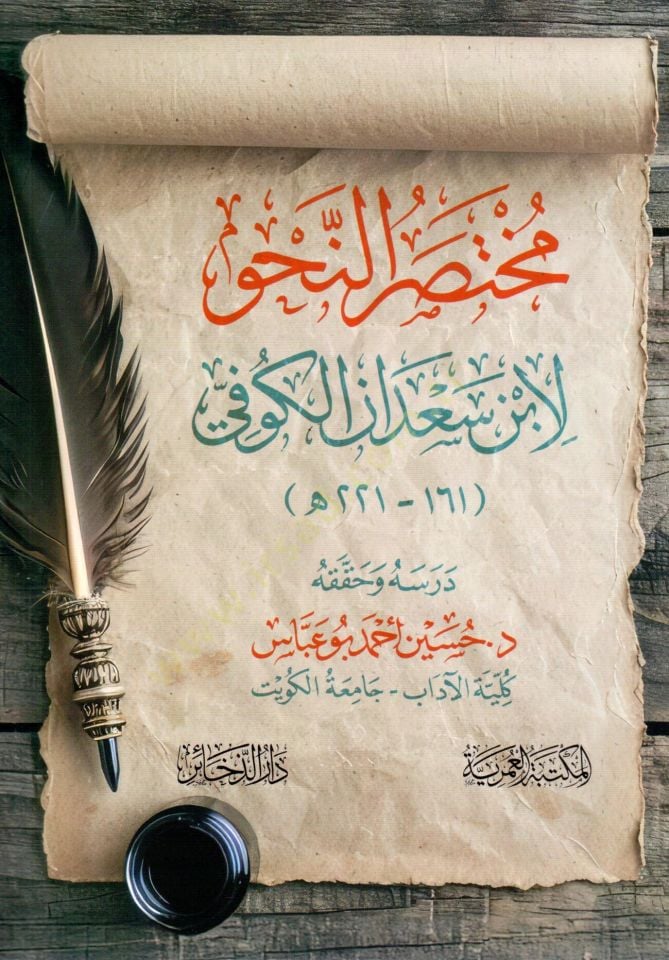 مُخْتَصَرُ النَّحْوِ
لِابْنِ سَعْدَانَ الكُوفِيِّ
(١٦١ - ٢٢١ هـ)
دَرَسَهُ وَحَقَّقَهُ
د. حُسَيْن أَحْمَد بُو عَبَّاس
كُلِّيَّةُ الآدَابِ - جَامِعَةُ الكُوَيْت
المَكْتَبَةُ العُمَرِيَّةُ
دَارُ الذَّخَائِرِ